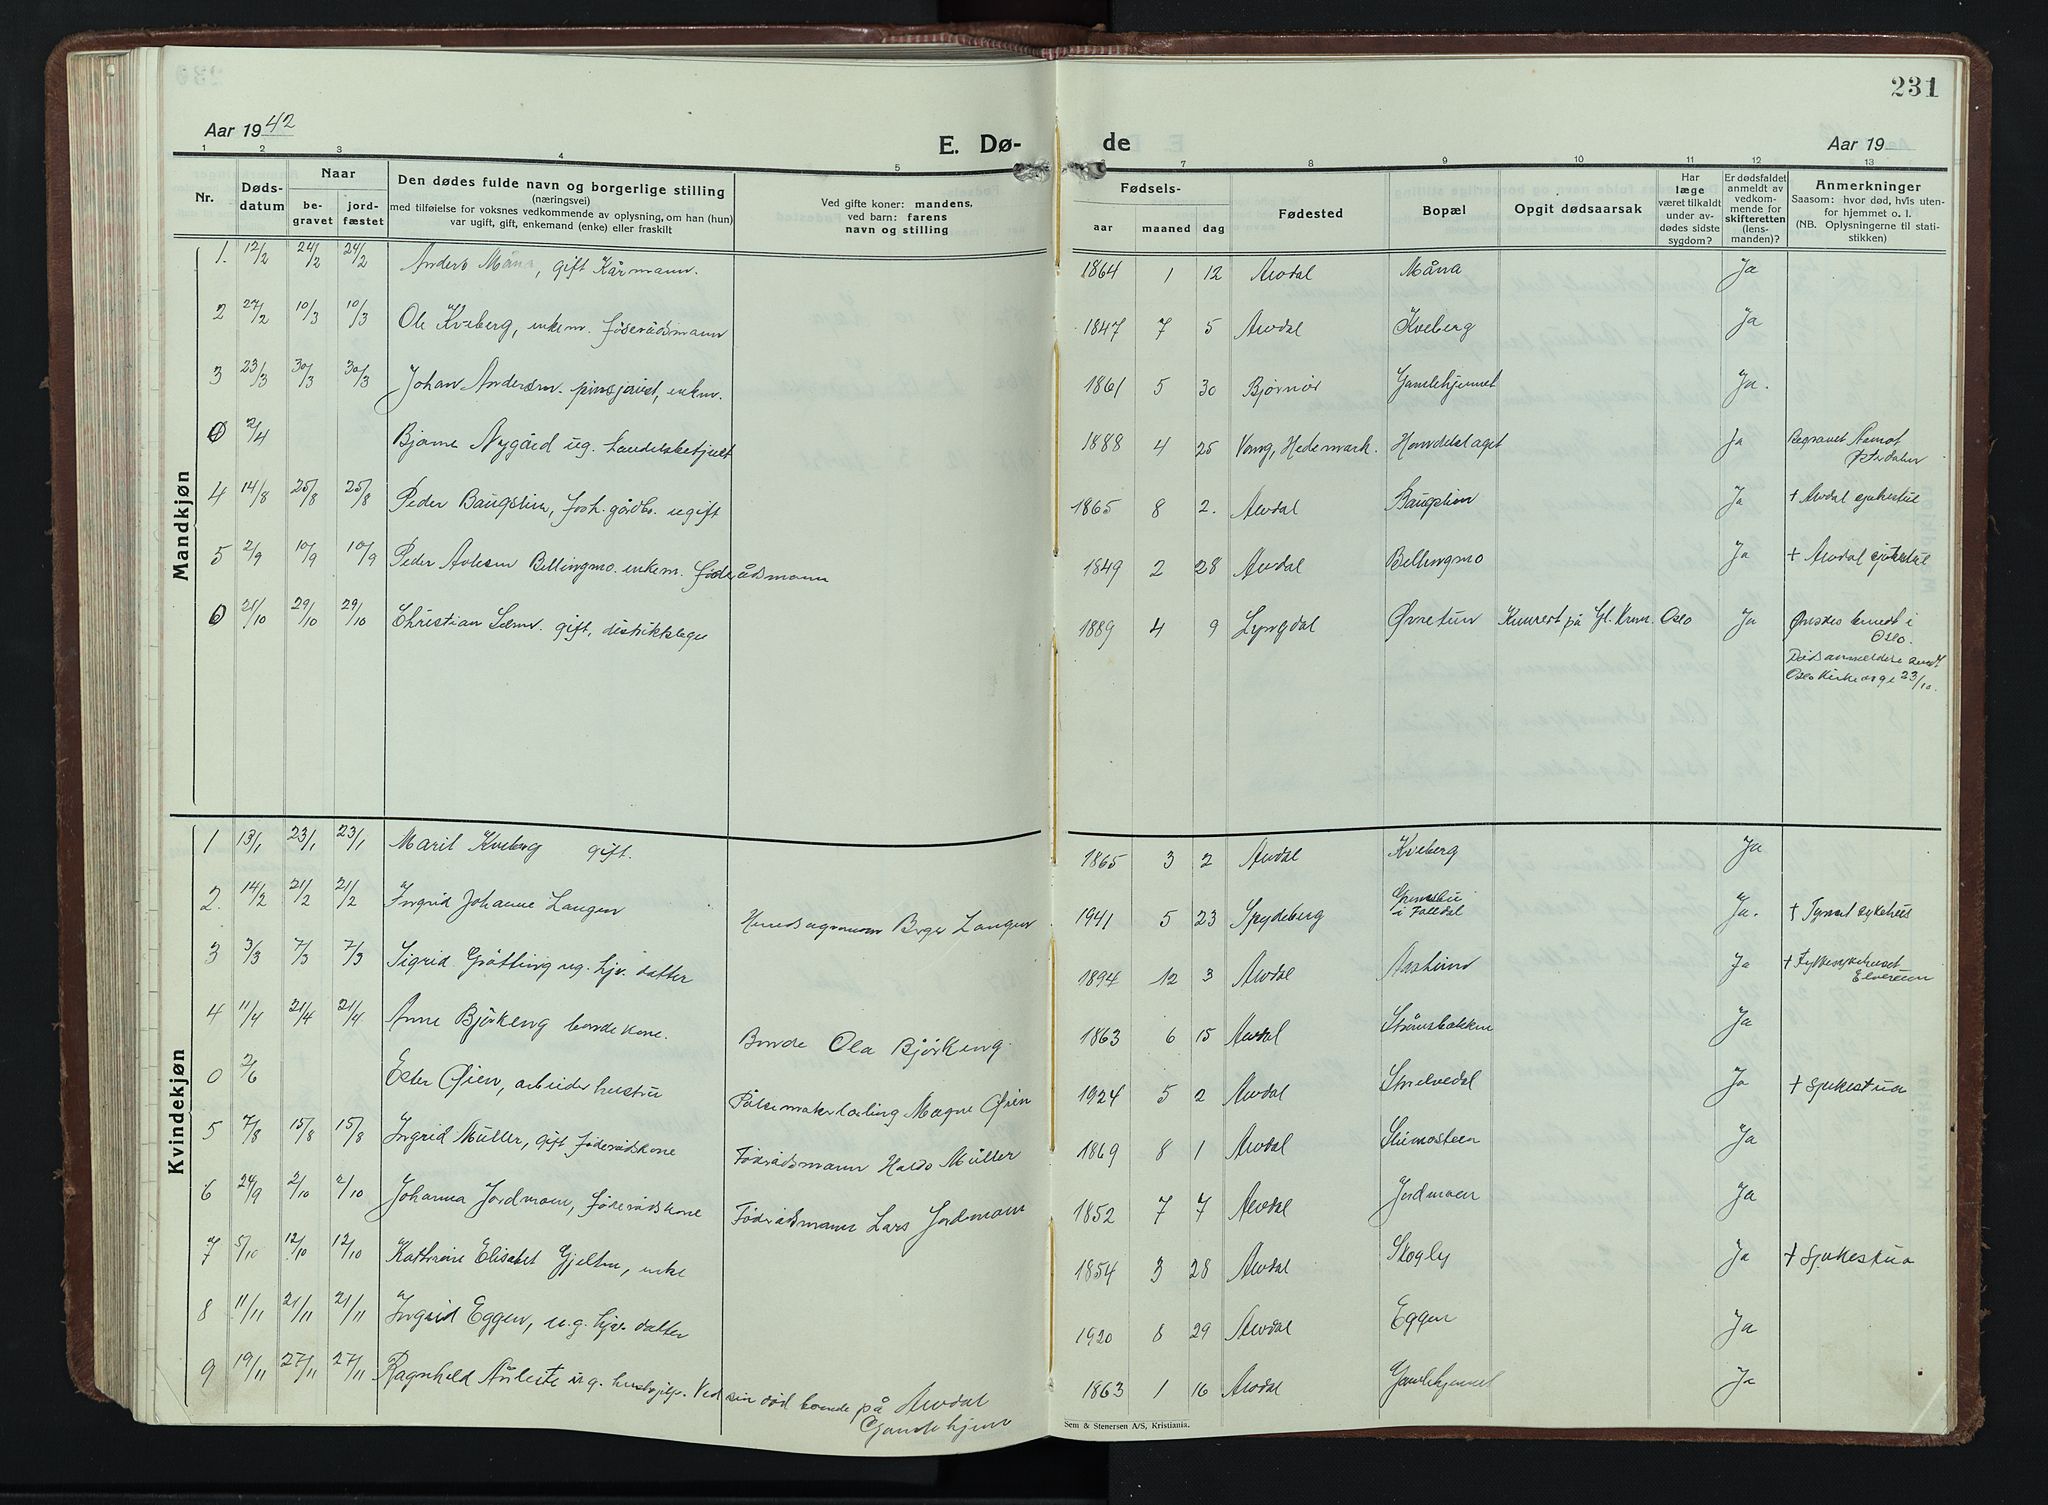 231
Aar 1942
E. Dø-
de
Aar 19
1 2 3 4 5 6 7 8 9 10 11 12 13
Nr.
Døds-
datum
Naar
be-
gravet
jord-
fæstet
Den dødes fulde navn og borgerlige stilling
(næringsvei)
med tilføielse for voksnes vedkommende av oplysning, om han (hun)
var ugift, gift, enkemand (enke) eller fraskilt
Ved gifte koner: mandens,
ved barn: farens
navn og stilling
Fødsels-
aar maaned dag
Fødested
Bopæl
Opgit dødsaarsak
Har
læge
været tilkaldt
under av-
dødes sidste
sygdom?
Er dødsfaldet
anmeldt av
vedkom-
mende for
skifteretten
(lens-
manden)?
Anmerkninger
Saasom: hvor død, hvis uten-
for hjemmet o. l.
(NB. Oplysningerne til stati-
stikken)
Mandkjøn
1. 12/2 24/2 24/2 Anders Måna, gift Kårmann. 1864 1 12 Alvdal Måna Ja
2 27/2 10/3 10/3 Ole Kveberg, enkem. føderådsmann 1847 7 5 Alvdal Kveberg Ja
3 23/3 30/3 30/3 Johan Andersen pensjonist, enkem. 1861 5 30 Bjørnör Gamlehjemmet Ja.
0 2/4 Bjarne Nygård ug. handelsbetjent 1888 4 25 Vang, Hedemark. Handelslaget Ja Begravet Åmot
Østerdalen
4 14/8 25/8 25/8 Peder Baugstien, forh. gårdbr. ugift 1865 8 2. Alvdal Baugstien Ja + Alvdal sjukestue
5 2/9 10/9 10/9 Peder Avlesen Bellingmo. enkem. føderådsmann 1849 2 28 Alvdal Bellingmo Ja + Alvdal sjukestue
0 21/10 29/10 29/10 Christian gift, distriktslege 1889 4 9 Lyngdal Ørnetun på Gl. Oslo Ja Ønskes i
Oslo.
Dødsanmeldelse sendt
Oslo Kirkeverge 23/10.
Kvindekjøn
1 13/1 23/1 23/1 Marit Kveberg gift. 1865 3 2 Alvdal Kveberg Ja
2. 14/2 21/2 21/2 Ingrid Johanne Langen Herredsagronom Birger Langen 1941 5 23 Spydeberg Grimsbu
i Folldal Ja. + Tynset sykehus
3 3/3 7/3 7/3 Sigrid Grötting ug. hjv. datter 1894 12 3 Alvdal Aaslund Ja + Fylkessykehuset
Elverum
4 11/4 21/4 21/4 Anne Björkeng bondekone. Bonde Ola Björkeng. 1863 6 15 Alvdal Strömsbakken Ja
0 2/6 Ester Øien, arbeider hustru Pølsemakerlærling Magne Øien 1924 5 2 Alvdal Strelvedal Ja + Sjukestua
5 7/8 15/8 15/8 Ingrid Müller, gift føderådskone Föderådsmann Haldo Müller 1869 8 1 Alvdal Steimosteen Ja
6 24/9 2/10 2/10 Johanna Jordmoen, føderådskone Föderådsmann Lars Jordmoen 1852 7 7 Alvdal Jordmoen Ja
7 5/10 12/10 12/10 Kathrine Elisabet Gjelten, enke 1854 3 28 Alvdal Skogly Ja + Sjukestua
8 11/11 21/11 21/11 Ingrid Eggen, u.g. hjv. datter 1920 8 29 Alvdal Eggen Ja
9 19/11 27/11 27/11 Ragnhild Nyleste ug. hushjelp. Ved sin död boende på Alvdal
Gamlehjem 1863 1 16 Alvdal Gamlehjemmet Ja
Sem & Stenersen A/S, Kristiania.